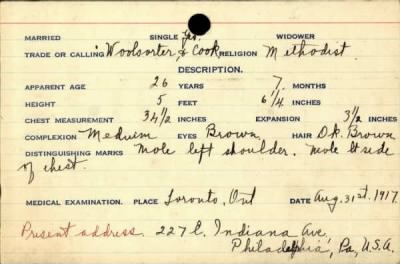 MARRIED SINGLE Yes. WIDOWER
TRADE OR CALLING Woolsorter & Cook RELIGION Methodist
DESCRIPTION.
APPARENT AGE 26 YEARS 7. MONTHS
HEIGHT 5 FEET 6 1/4 INCHES
CHEST MEASUREMENT 34 1/2 INCHES EXPANSION 3 1/2 INCHES
COMPLEXION Medium EYES Brown HAIR Dk. Brown
DISTINGUISHING MARKS Mole left shoulder. Mole lt side
of chest.
MEDICAL EXAMINATION. PLACE Toronto, Ont DATE Aug. 31st. 1917.
Present address. 227 E. Indiana Ave.
Philadelphia, Pa, U.S.A.